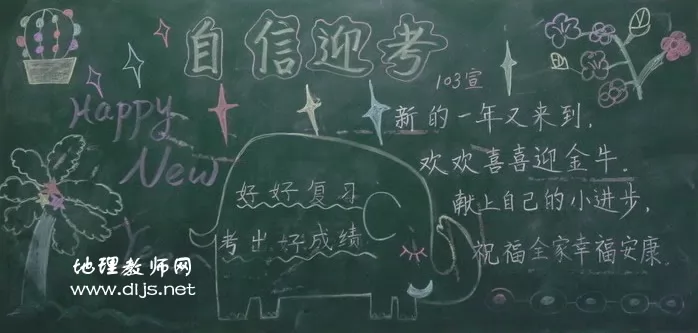 自信迎考
Happy
New
Year
好好复习
考出好成绩
103宣
新的一年又来到,
欢欢喜喜迎金牛.
献上自己的小进步,
祝福全家幸福安康.
地理教师网
www.dljs.net